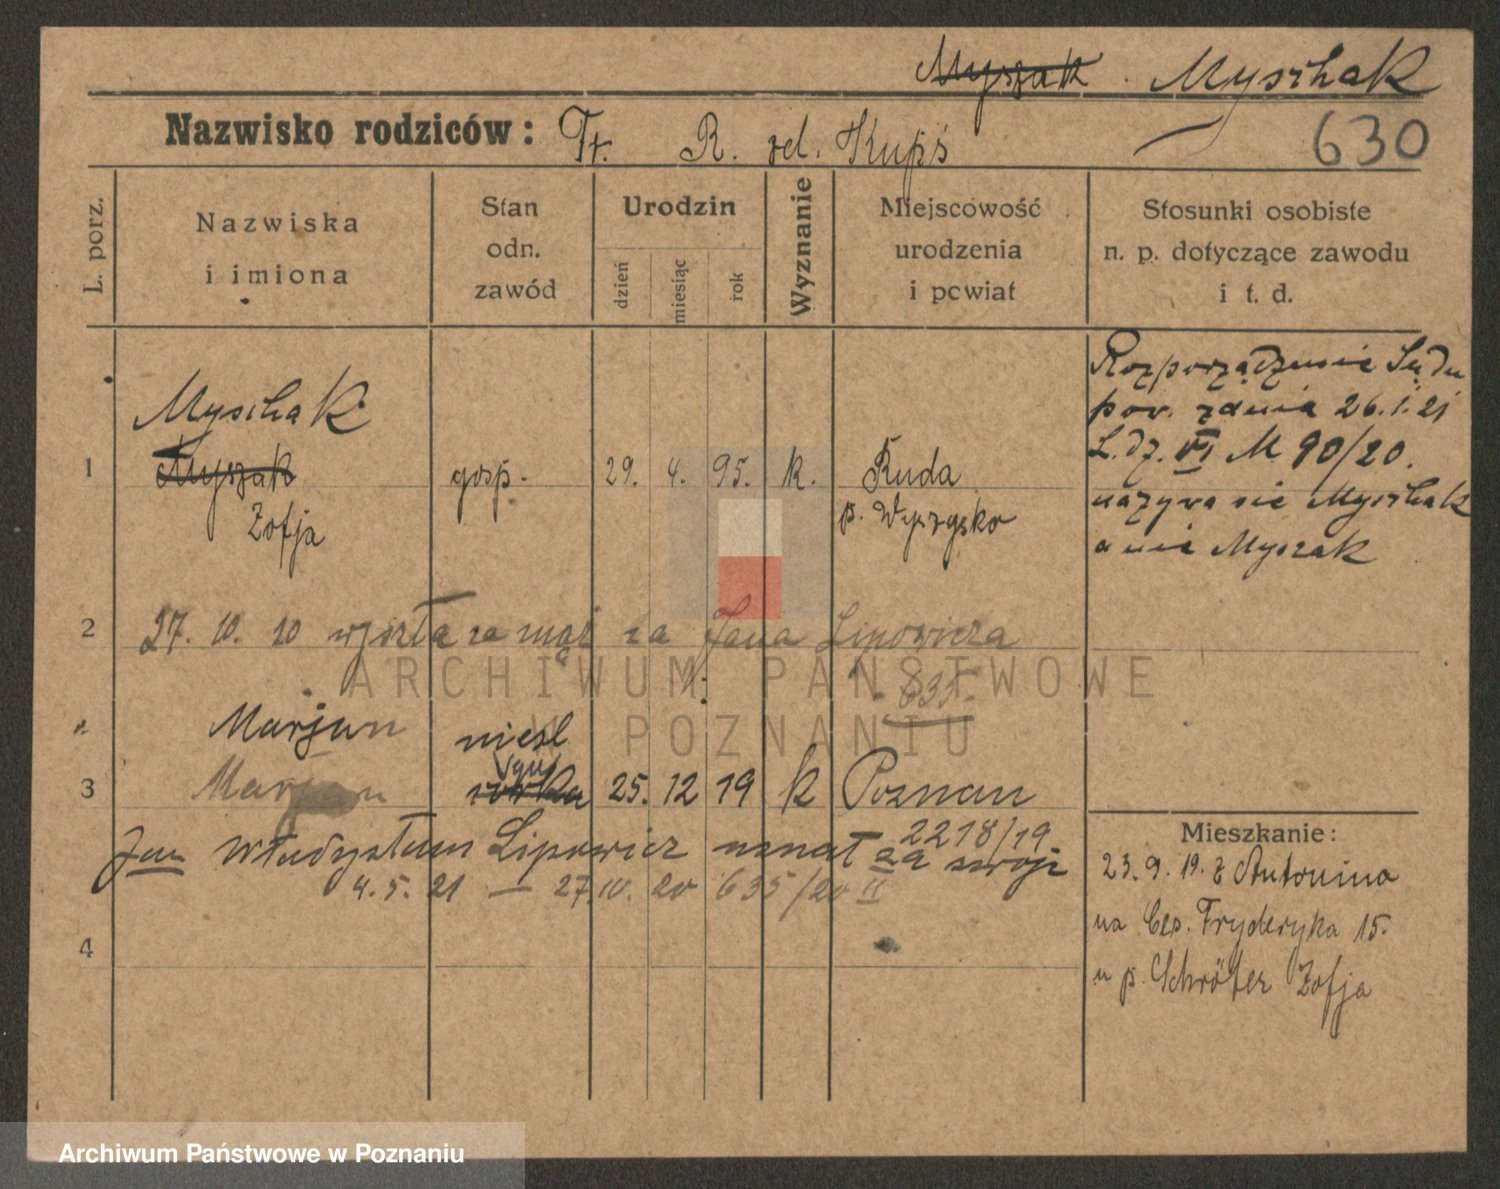 Myszak . Myschak
Nazwisko rodziców: Fr. R. rd. Kupś
630
L. porz.
Nazwiska
i imiona
Stan
odn.
zawód
Urodzin
dzień
miesiąc
rok
Wyznanie
Miejscowość
urodzenia
i powiat
Stosunki osobiste
n. p. dotyczące zawodu
i t. d.
1
Myschak
Myszak
Zofja
gosp.
29. 4. 95. k.
Ruda
p. Wyrzysko
Rozporządzenie Sądu
pow. z dnia 26.1.21
L.dz. VI M 90/20.
nazywa sie Myschak
a nie Myszak
2
27. 10. 20 wyszła za mąż za Jana Lipowicza
635
Marjan
niesl
3
Marjan
25. 12 19 k Poznan
2218/19
Jan Władysław Lipowicz uznał za swoje
4. 5. 21 — 27. 10. 20 635/20 II
4
Mieszkanie:
23. 9. 19. z Antonina
na Ces. Fryderyka 15.
u p. Schröter Zofja
ARCHIWUM PAŃSTWOWE
W POZNANIU
Archiwum Państwowe w Poznaniu